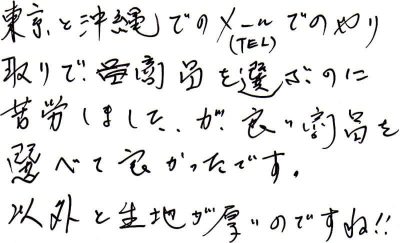 東京と沖縄でのメールでのやり
(TEL)
取りで商品を選ぶのに
苦労しました、が、良い商品を
選べて良かったです。
以外と生地が厚いのですね!!